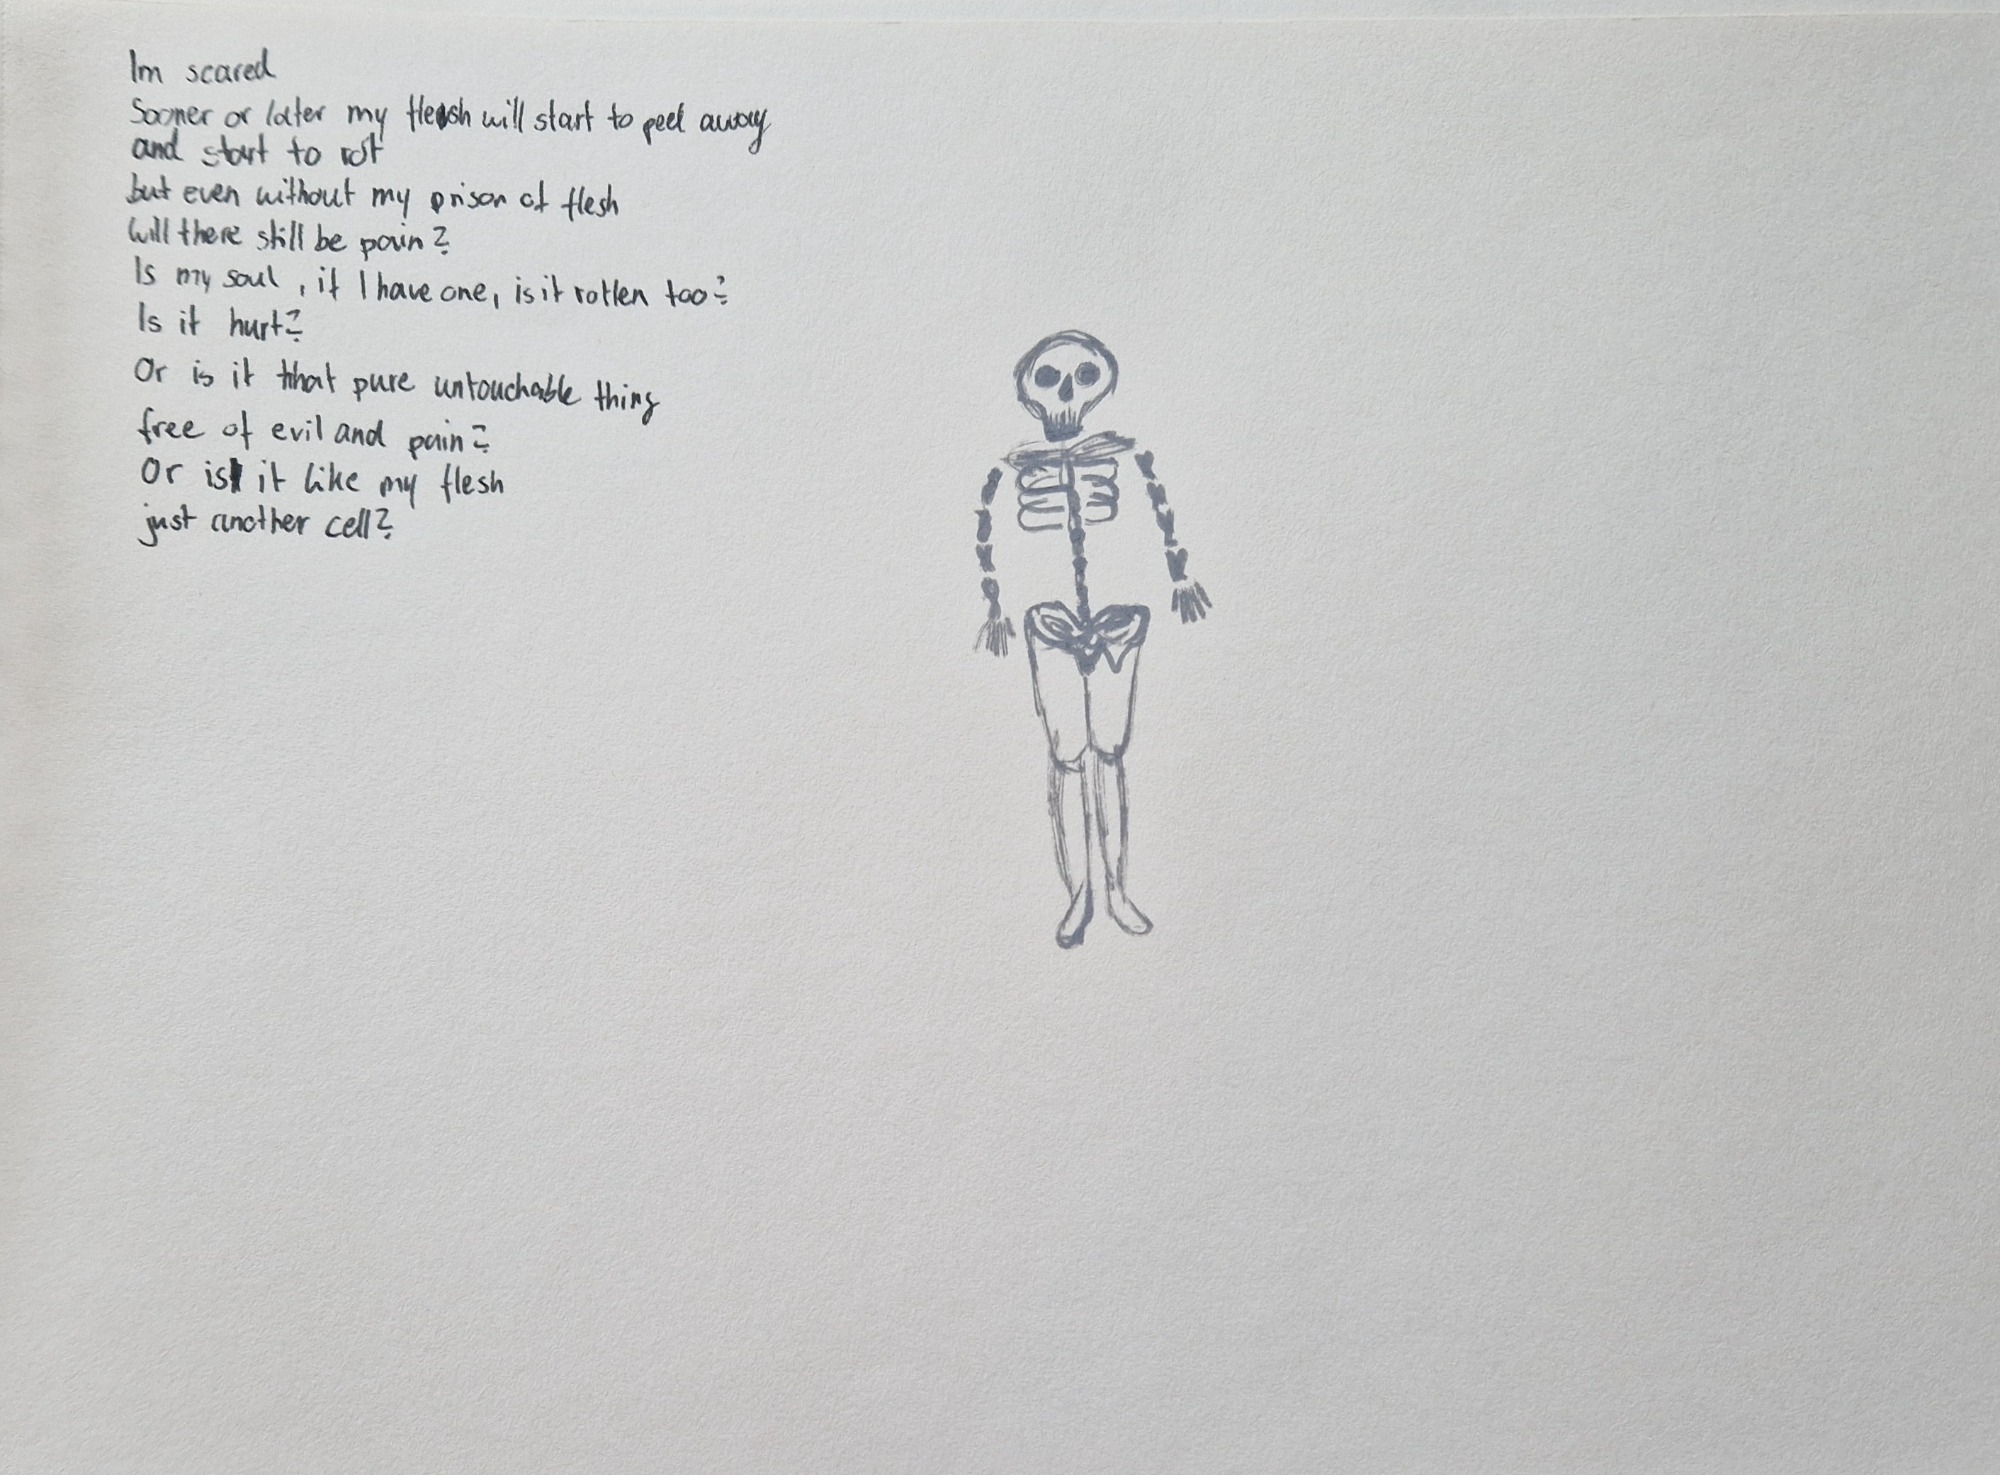 Im scared
Sooner or later my flesh will start to peel away
and start to rot
but even without my prison of flesh
Will there still be pain?
Is my soul, if I have one, is it rotten too?
Is it hurt?
Or is it that pure untouchable thing
free of evil and pain?
Or is it like my flesh
just another cell?